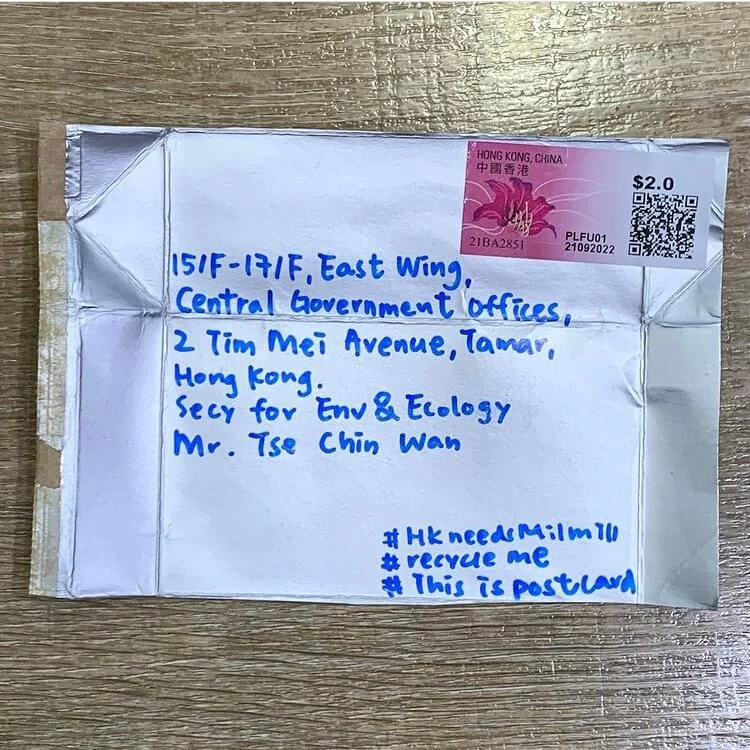 HONG KONG, CHINA
中國香港
$2.0
21BA2851
PLFU01
21092022
15/F-17/F, East Wing,
Central Government Offices,
2 Tim Mei Avenue, Tamar,
Hong Kong.
Secy for Env & Ecology
Mr. Tse Chin Wan
# HKneedsMilmill
# recycle me
# This is postcard